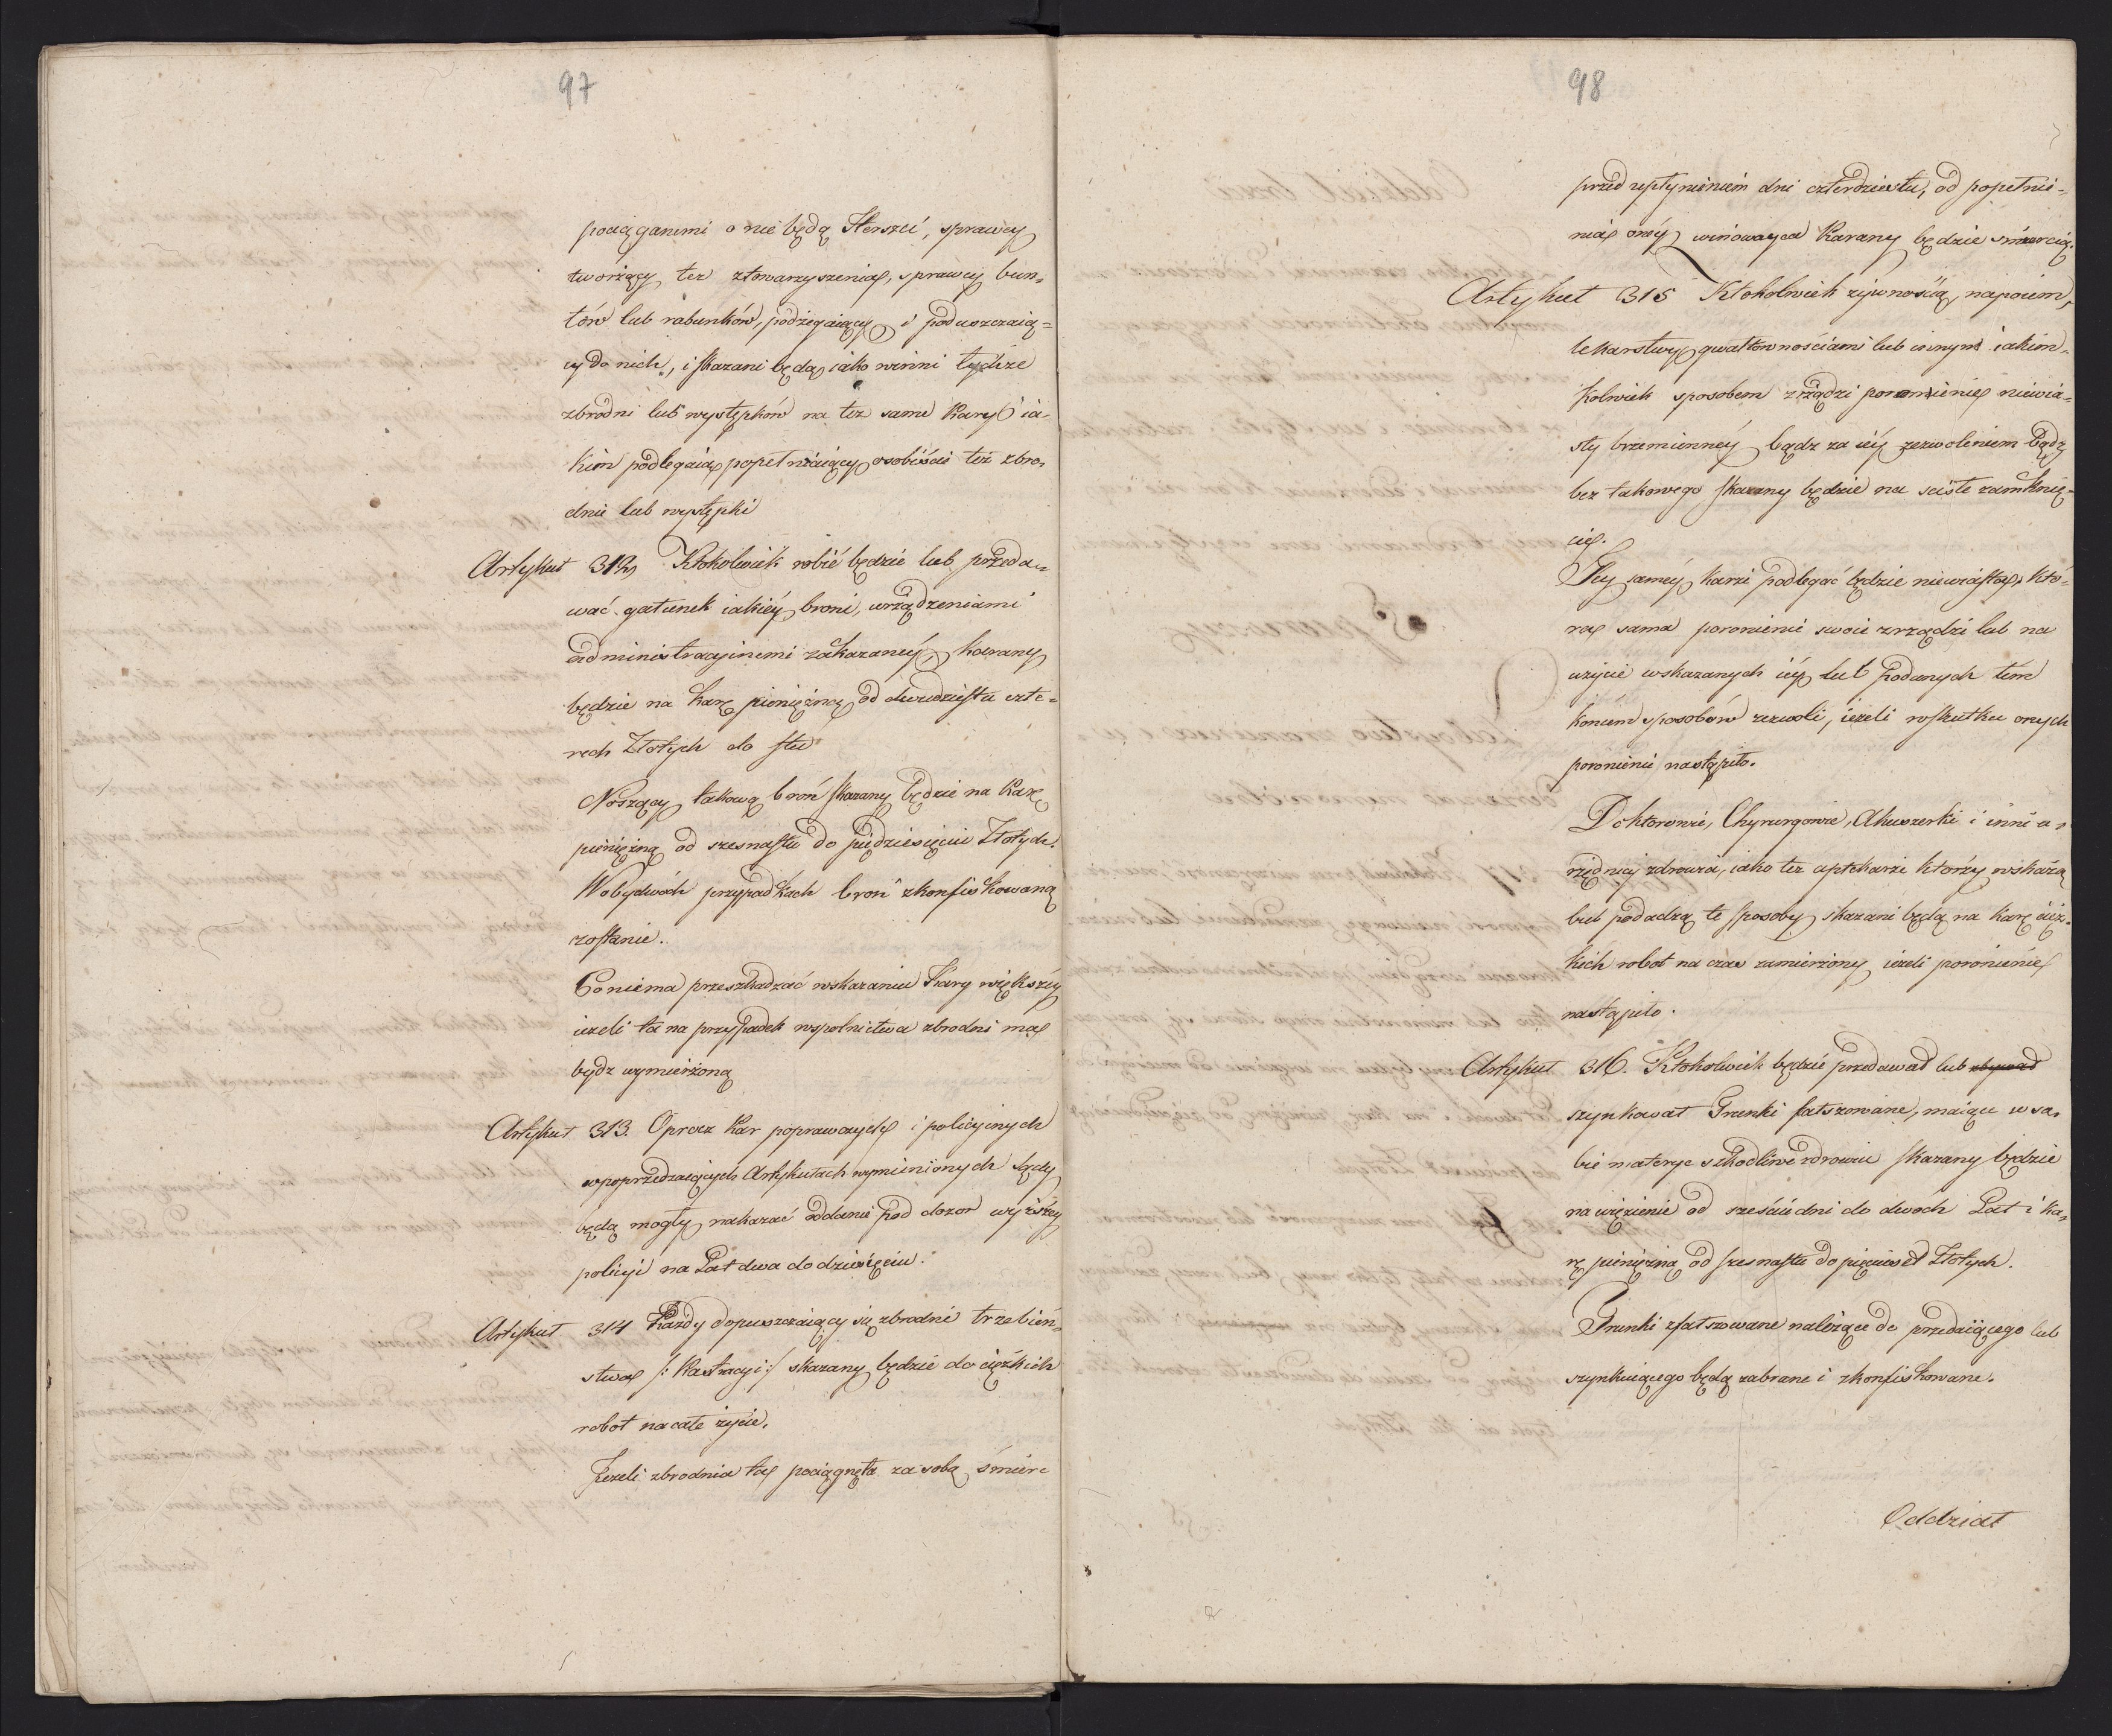 97
pociąganemi o nie będą Herszci, sprawcy
tworzący tez ztowarzyszenia, sprawcy bun-
tów lub rabunków, podżegaiący i poduszczaią-
cy do nich, i skazani będą iako winni tychże
zbrodni lub występków na tez same Kary ia-
kim podlegaią popełniaiący osobiście też zbro-
dnie lub występki
Artykuł 312 Ktokolwiek robić będzie lub przeda-
wać gatunek iakiéy broni, urządzeniami
administracyinemi zakazanéy, karany
będzie na karę pieniężną od dwudziestu czte-
rech Złotych do stu
Noszący takową broń skazany będzie na karę
pieniężną od szesnastu do piędziesięciu Złotych.
W obydwóch przypadkach broń zkonfiskowaną
zostanie.
Co niema przeszkadzać wskazaniu Kary większéy
iezeli ta na przypadek wspolnictwa zbrodni ma
bydz wymierżoną
Artykuł 313. Oprocz kar poprawczych i policyinych
w poprzedzaiących Artykułach wymienionych sądy
będą mogły nakazać oddanie pod dozor wyższéy
policyi na Lat dwa do dziesięciu.
Artykuł 314 Każdy dopuszczaiący się zbrodni trzebień-
stwa /: Kastracyi :/ skazany będzie do ciężkich
robot na całe życie.
Jezeli zbrodnia ta pociągnęła za sobą śmierć
98
przed upłynieniem dni czterdziestu, od popełnie-
nia onéy winowayca Karany będzie śmiercią.
Artykuł 315 Ktokolwiek zywnością, napoiem,
lekarstwy, gwałtownościami lub innym iakim-
kolwiek sposobem zrządzi poronienie niewia-
sty brzemiennéy bądz za iéy zezwoleniem bądz
bez takowego skazany będzie na sciste zamknię-
cie.
Tey saméy karze podlegać będzie niewiasta, któ-
ra sama poronienie swoie zrządzi lub na
uzycie wskazanych iéy lub podanych tém
koncem sposobów zezwoli, iezeli w skutku onych
poronienie nastąpiło.
Doktorowie, Chyrurgowie, Akuszerki i inni u-
rzędnicy zdrowia, iako tez aptekarze którzy wskażą
lub podadzą te sposoby skazani będą na karę cięż-
kich robot na czas zamierzony iezeli poronienie
nastąpiło.
Artykuł 316. Ktokolwiek będzie przedawał lub
szynkował Trunki fałszowane, maiące w so-
bie materye szkodliwe zdrowiu skazany będzie
na więzienie od sześciu dni do dwoch Lat i ka-
rę pieniężną od szesnastu do pięciuset Złotych.
Trunki zfałszowane należące do przedaiącego lub
szynkuiącego będą zabrane i zkonfiskowane.
Oddział